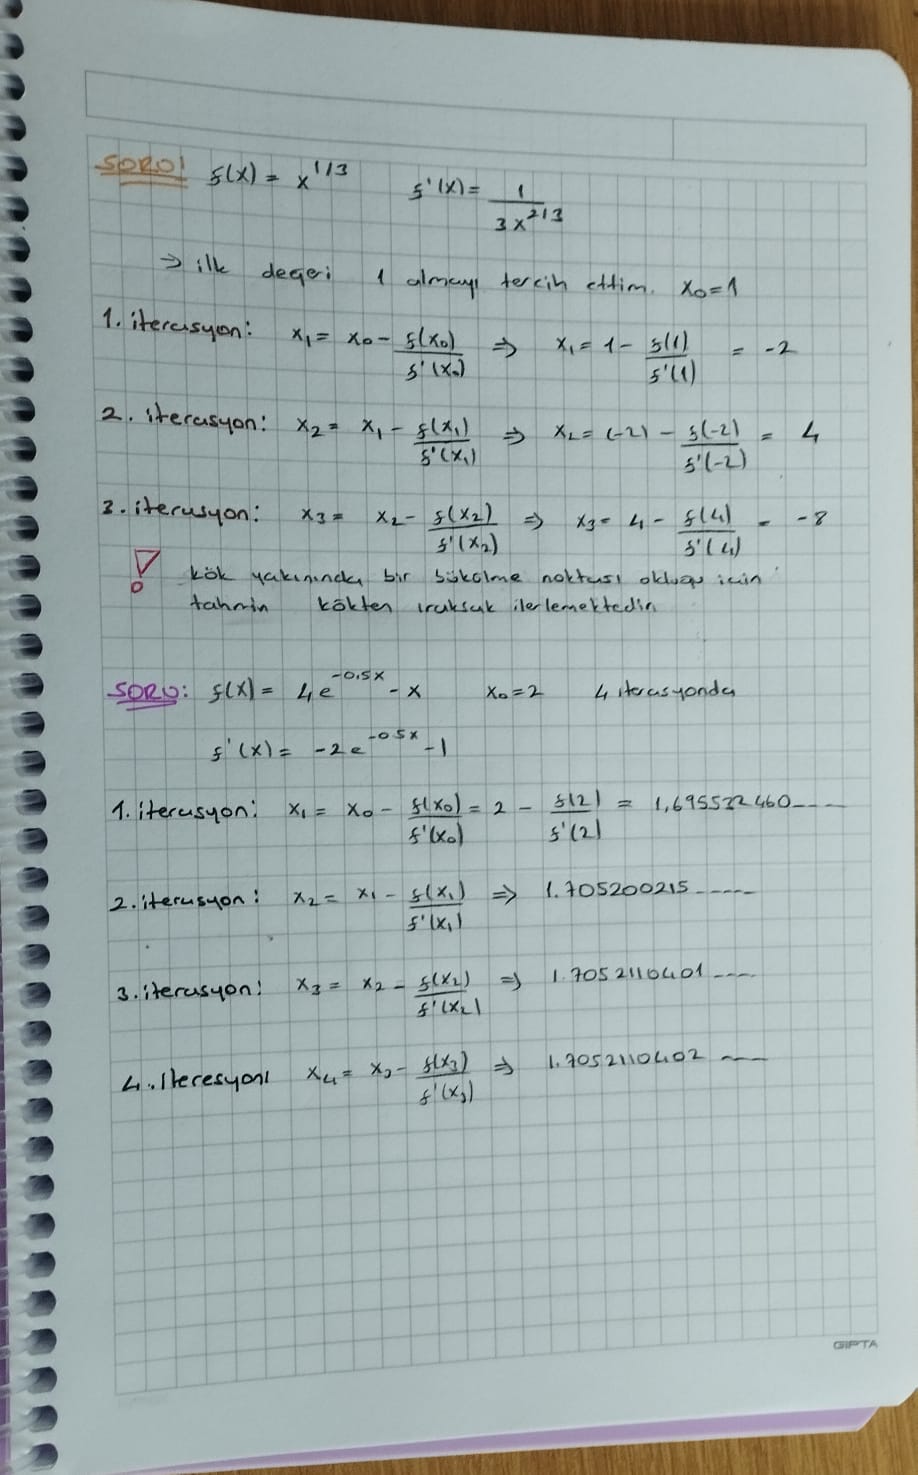 SORU! f(x) = x^1/3 f'(x) = 1 / 3x^2/3
→ ilk değeri 1 almayı tercih ettim. x₀=1
1. iterasyon: x₁ = x₀ - f(x₀)/f'(x₀) ⇒ x₁ = 1 - f(1)/f'(1) = -2
2. iterasyon: x₂ = x₁ - f(x₁)/f'(x₁) ⇒ x₂ = (-2) - f(-2)/f'(-2) = 4
3. iterasyon: x₃ = x₂ - f(x₂)/f'(x₂) ⇒ x₃ = 4 - f(4)/f'(4) = -8
! kök yakınında bir bükülme noktası olduğu için
tahmin kökten ıraksak ilerlemektedir.
SORU: f(x) = 4e^-0.5x - x x₀=2 4 iterasyonda
f'(x) = -2e^-0.5x - 1
1. iterasyon: x₁ = x₀ - f(x₀)/f'(x₀) = 2 - f(2)/f'(2) = 1,695522460----
2. iterasyon: x₂ = x₁ - f(x₁)/f'(x₁) ⇒ 1.705200215-----
3. iterasyon: x₃ = x₂ - f(x₂)/f'(x₂) ⇒ 1.7052110401----
4. Iteresyon: x₄ = x₃ - f(x₃)/f'(x₃) ⇒ 1.7052110402----
GIPTA